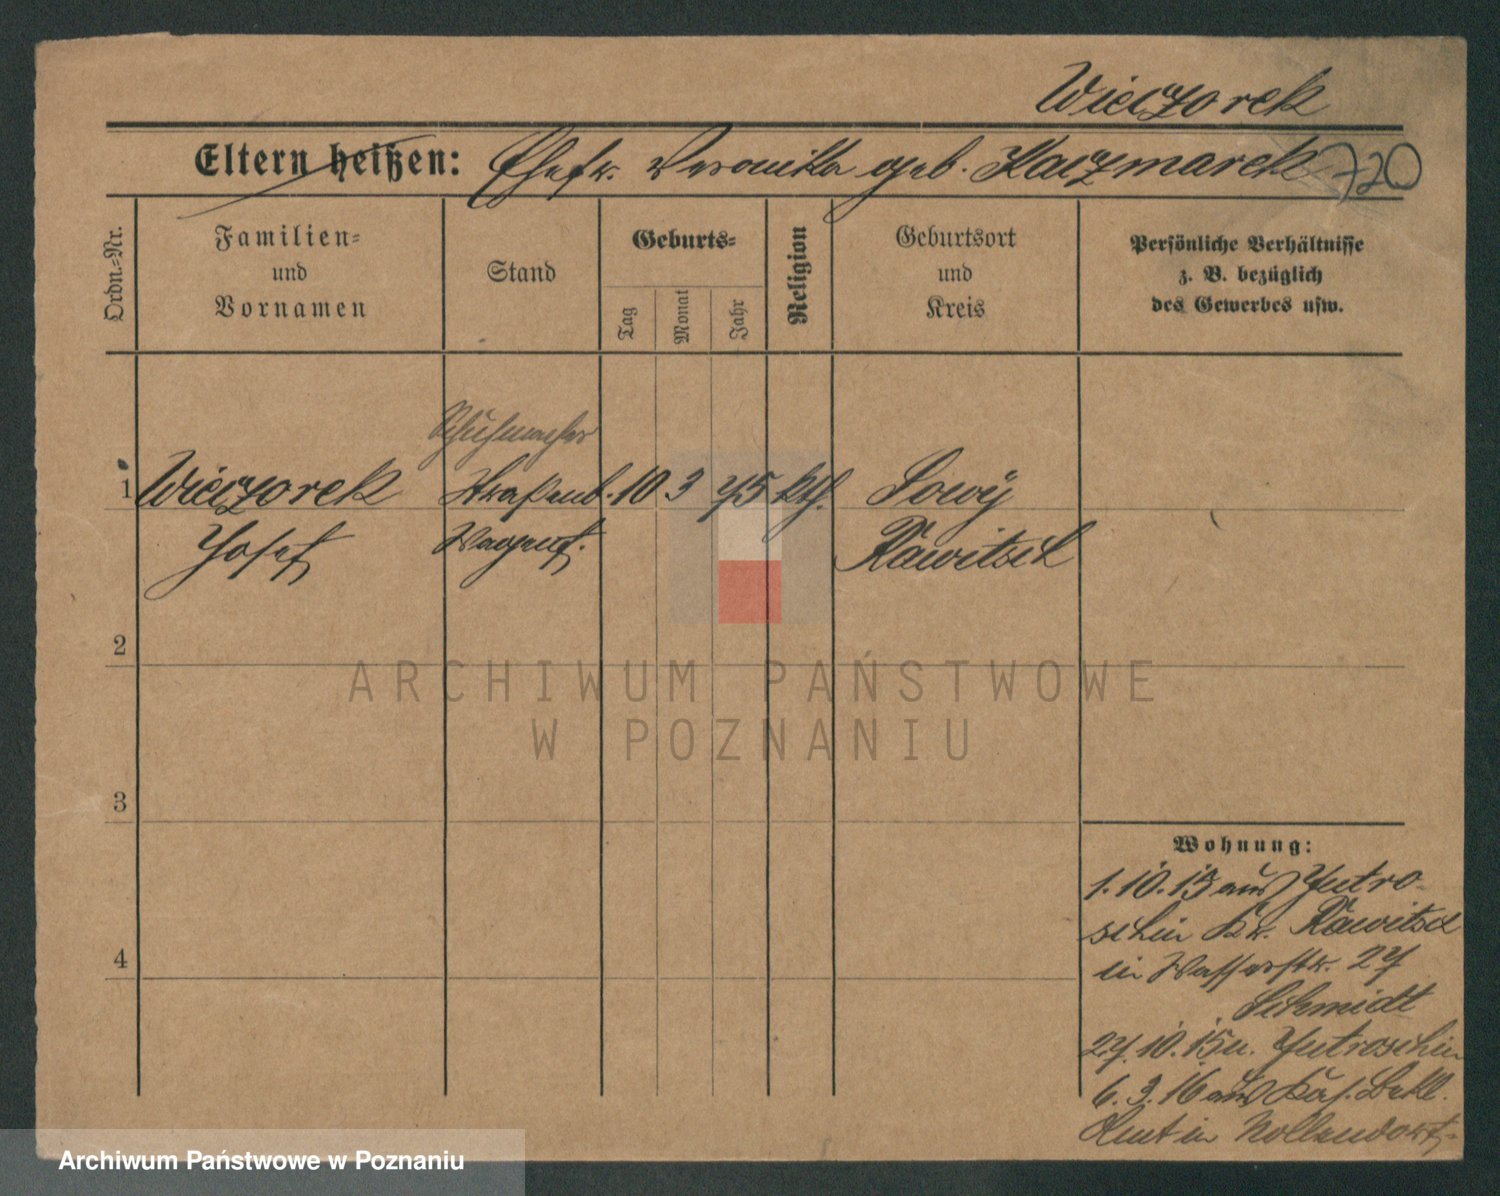 Wieczorek
Eltern heißen: Ehefr. Veronika geb. Kaczmarek 720
Ordn.-Nr.
Familien-
und
Vornamen
Stand
Geburts-
Tag
Monat
Jahr
Religion
Geburtsort
und
Kreis
Persönliche Verhältnisse
z. B. bezüglich
des Gewerbes usw.
Schuhmacher
1 Wieczorek Straßenb. 10 3 75 kth. Sowy
Josef Wagenf. Rawitsch
2
3
4
ARCHIWUM PAŃSTWOWE
W POZNANIU
Wohnung:
1.10.15 aus Jutro-
schin Kr. Rawitsch
in Wasserstr. 27
Schmidt
27.10.15 n. Jutroschin
6.3.16 aus Bekl.
Amt in Nollendorf-
Archiwum Państwowe w Poznaniu